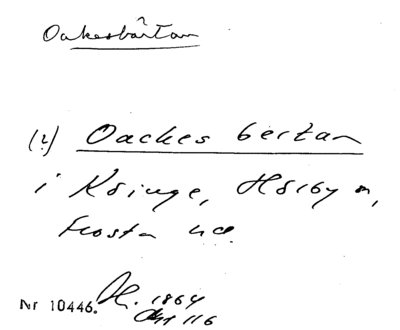 Oakesbårtan
(?) Oackes bertan
i Köinge, Hörby sn,
Frosta hd.
Nr 10446. 1864
116